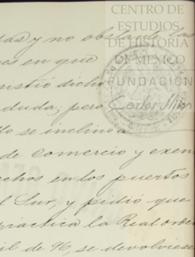 CENTRO DE
ESTUDIOS
DE HISTORIA
DE MÉXICO
FUNDACIÓN
Carlos Slim
y no obstante las
en que
dicho
duda; pero
se inclina
de comercio y exen
en los puertos
Sur, y pidió que
practica la Real orden
de 96, se devolviese